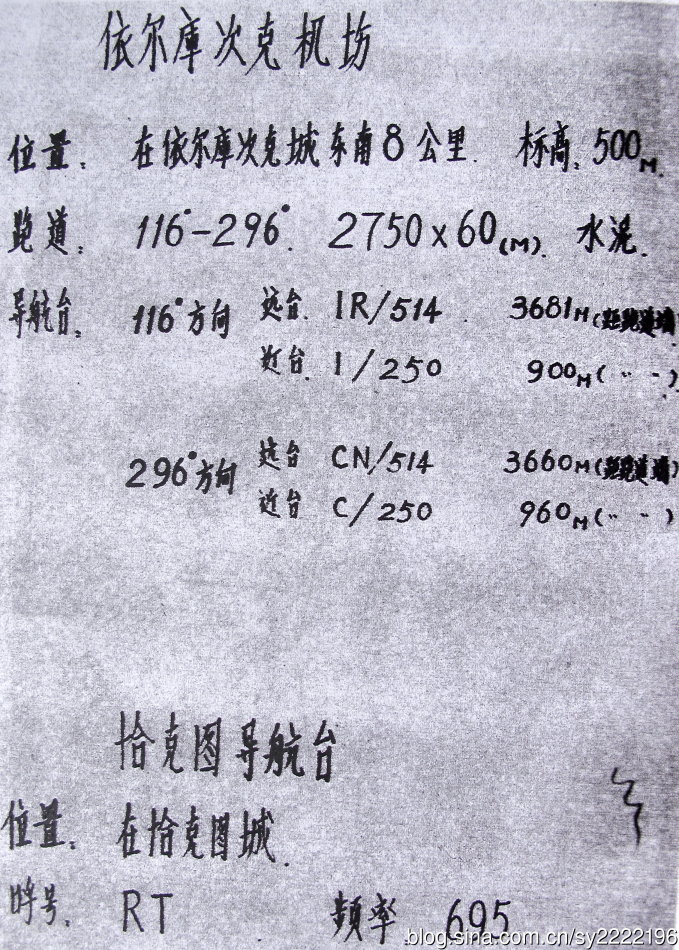 依尔库次克机场
位置: 在依尔库次克城东南8公里. 标高: 500M.
跑道: 116°-296°. 2750x60(M). 水泥.
导航台: 116°方向 远台. IR/514. 3681M(距跑道端)
近台. I/250 900M(〃 〃)
296°方向 远台 CN/514 3660M(距跑道端)
近台 C/250 960M(〃 〃)
恰克图导航台
位置: 在恰克图城.
呼号: RT 频率 695
blog.sina.com.cn/sy2222196